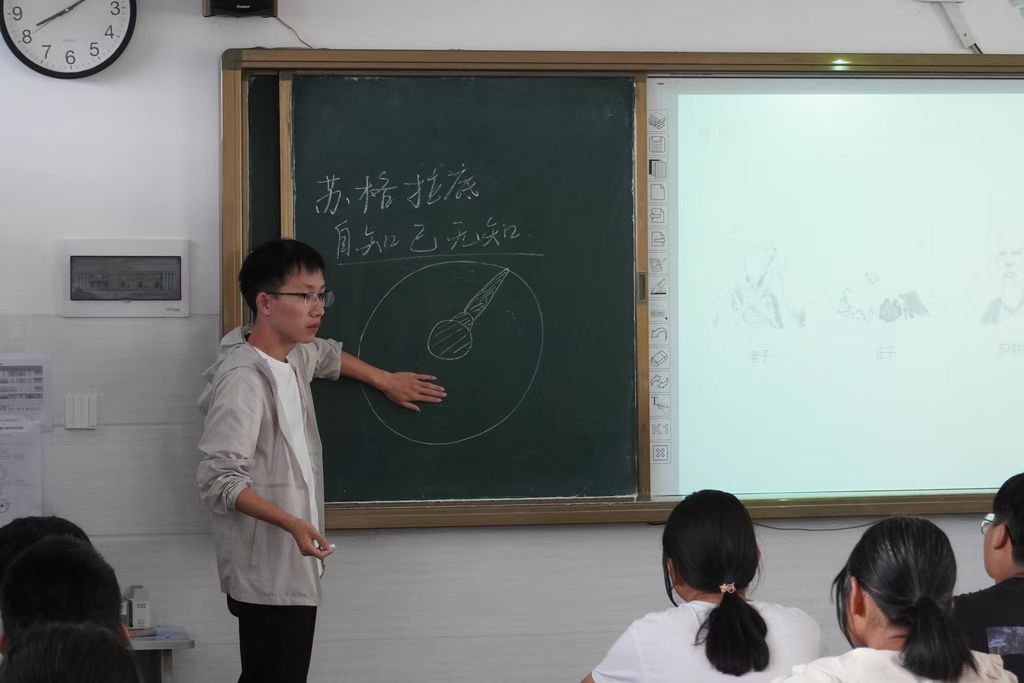 3
4
5
6
7
8
9
苏格拉底
自知己无知
老子
庄子
K1